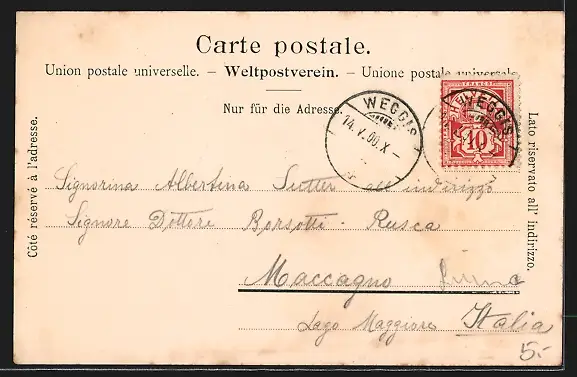 Carte postale.
Union postale universelle. – Weltpostverein. – Unione postale universale
Nur für die Adresse.
WEGGIS
14.V.00.X–
WEGGIS
FRANCO
10
Côté réservé à l'adresse.
Lato riservato all' indirizzo.
Signorina Albertina Sutter all' indirizzo
Signore Dottore Borsotti - Rusca
Maccagno
Lago Maggiore Italia
5.-